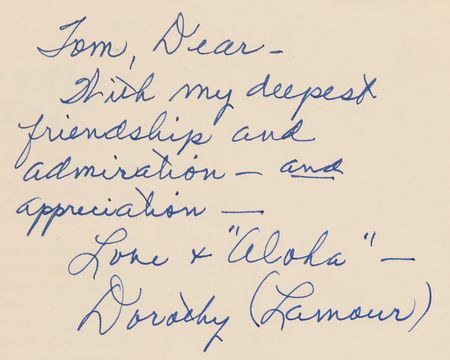 Tom, Dear -
With my deepest
friendship and
admiration - and
appreciation —
Love + "Aloha" -
Dorothy (Lamour)